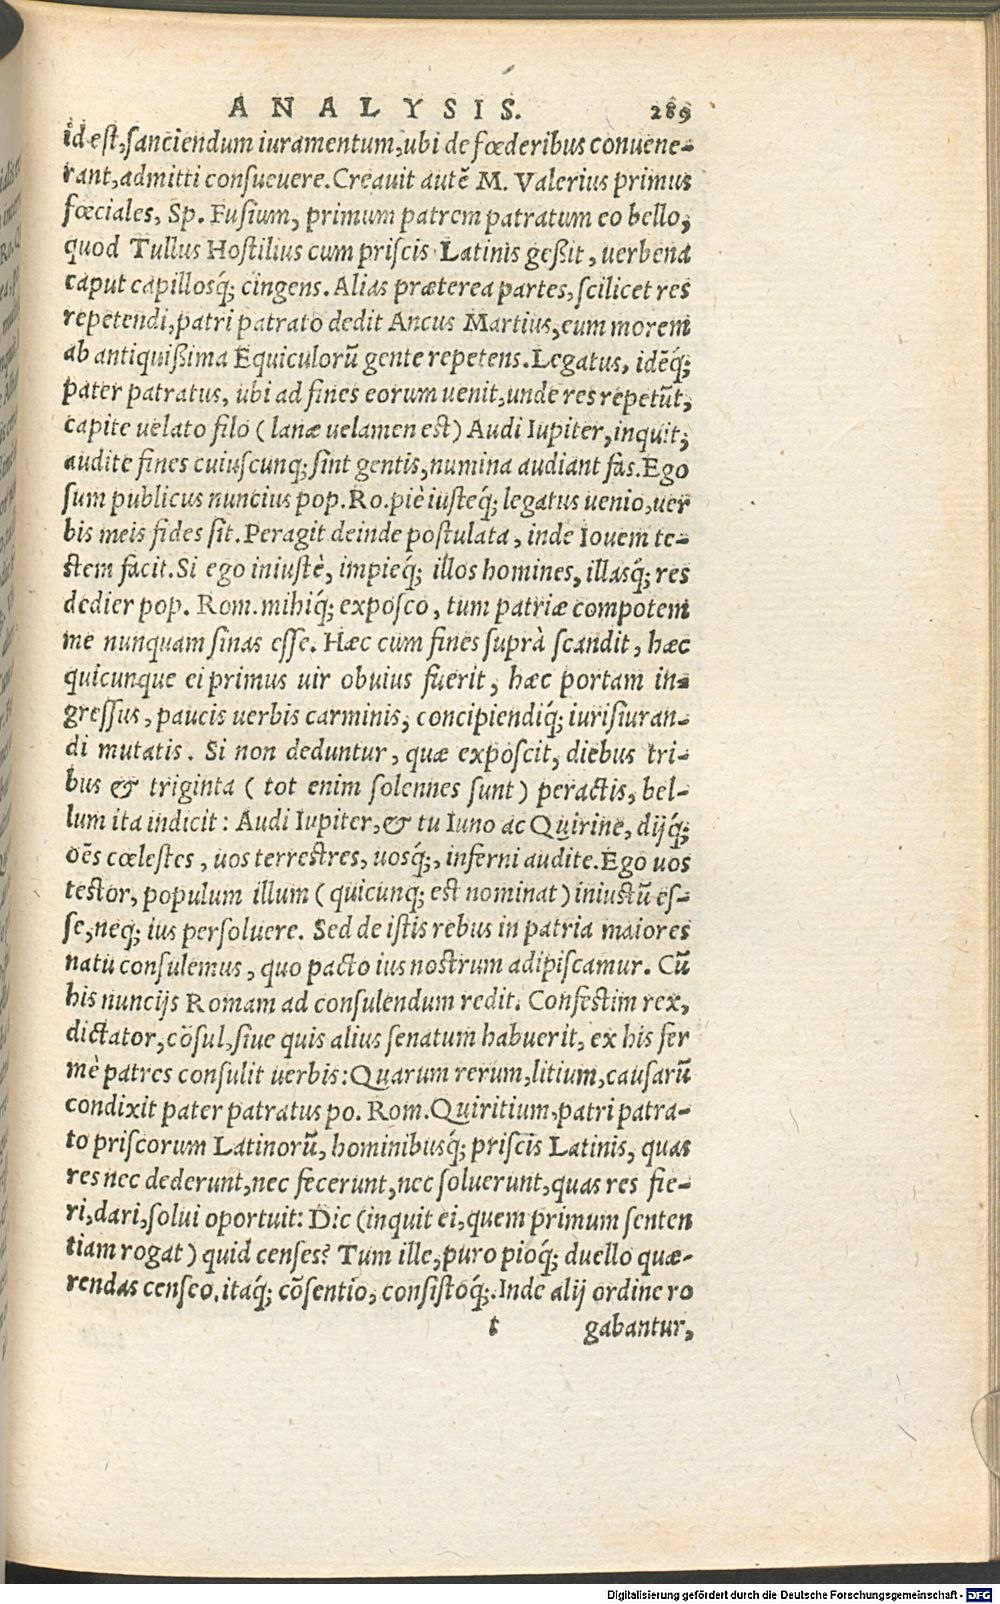 ANALYSIS. 289
id est, sanciendum iuramentum, ubi de fœderibus conuene-
rant, admitti consueuere. Creauit autẽ M. Valerius primus
fœciales, Sp. Fusium, primum patrem patratum eo bello,
quod Tullus Hostilius cum priscis Latinis geßit, uerbena
caput capillosq́; cingens. Alias præterea partes, scilicet res
repetendi, patri patrato dedit Ancus Martius, eum morem
ab antiquißima Equiculorũ gente repetens. Legatus, idẽq́;
pater patratus, ubi ad fines eorum uenit, unde res repetũt,
capite uelato filo (lanæ uelamen est) Audi Iupiter, inquit,
audite fines cuiuscunq; sint gentis, numina audiant fas. Ego
sum publicus nuncius pop. Ro. piè iusteq́; legatus uenio, uer
bis meis fides sit. Peragit deinde postulata, inde Iouem te-
stem facit. Si ego iniustè, impieq́; illos homines, illasq́; res
dedier pop. Rom. mihiq́; exposco, tum patriæ compotem
me nunquam sinas esse. Hæc cum fines suprà scandit, hæc
quicunque ei primus uir obuius fuerit, hæc portam in-
gressus, paucis uerbis carminis, concipiendiq́; iurisiuran-
di mutatis. Si non deduntur, quæ exposcit, diebus tri-
bus & triginta (tot enim solennes sunt) peractis, bel-
lum ita indicit: Audi Iupiter, & tu Iuno ac Quirine, dijq́;
oẽs cœlestes, uos terrestres, uosq́;, inferni audite. Ego uos
testor, populum illum (quicunq; est nominat) iniustũ es-
se, neq; ius persoluere. Sed de istis rebus in patria maiores
natu consulemus, quo pacto ius nostrum adipiscamur. Cũ
his nuncijs Romam ad consulendum redit. Confestim rex,
dictator, cõsul, siue quis alius senatum habuerit, ex his fer
mè patres consulit uerbis: Quarum rerum, litium, causarũ
condixit pater patratus po. Rom. Quiritium, patri patra-
to priscorum Latinorũ, hominibusq́; priscis Latinis, quas
res nec dederunt, nec fecerunt, nec soluerunt, quas res fie-
ri, dari, solui oportuit: Dic (inquit ei, quem primum senten
tiam rogat) quid censes? Tum ille, puro pioq́; duello quæ-
rendas censeo, itaq́; cõsentio, consistoq́;. Inde alij ordine ro
t gabantur,
Digitalisierung gefördert durch die Deutsche Forschungsgemeinschaft - DFG